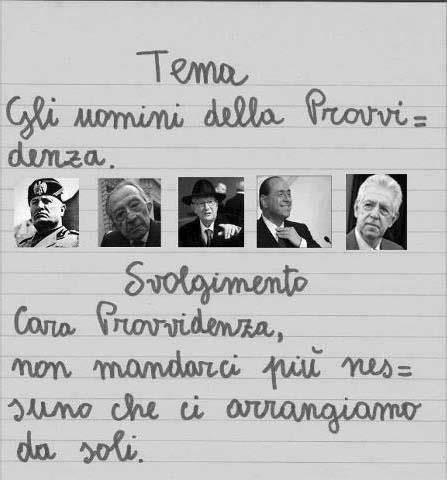 Tema
Gli uomini della Provvi=
denza.
Svolgimento
Cara Provvidenza,
non mandarci più nes=
suno che ci arrangiamo
da soli.